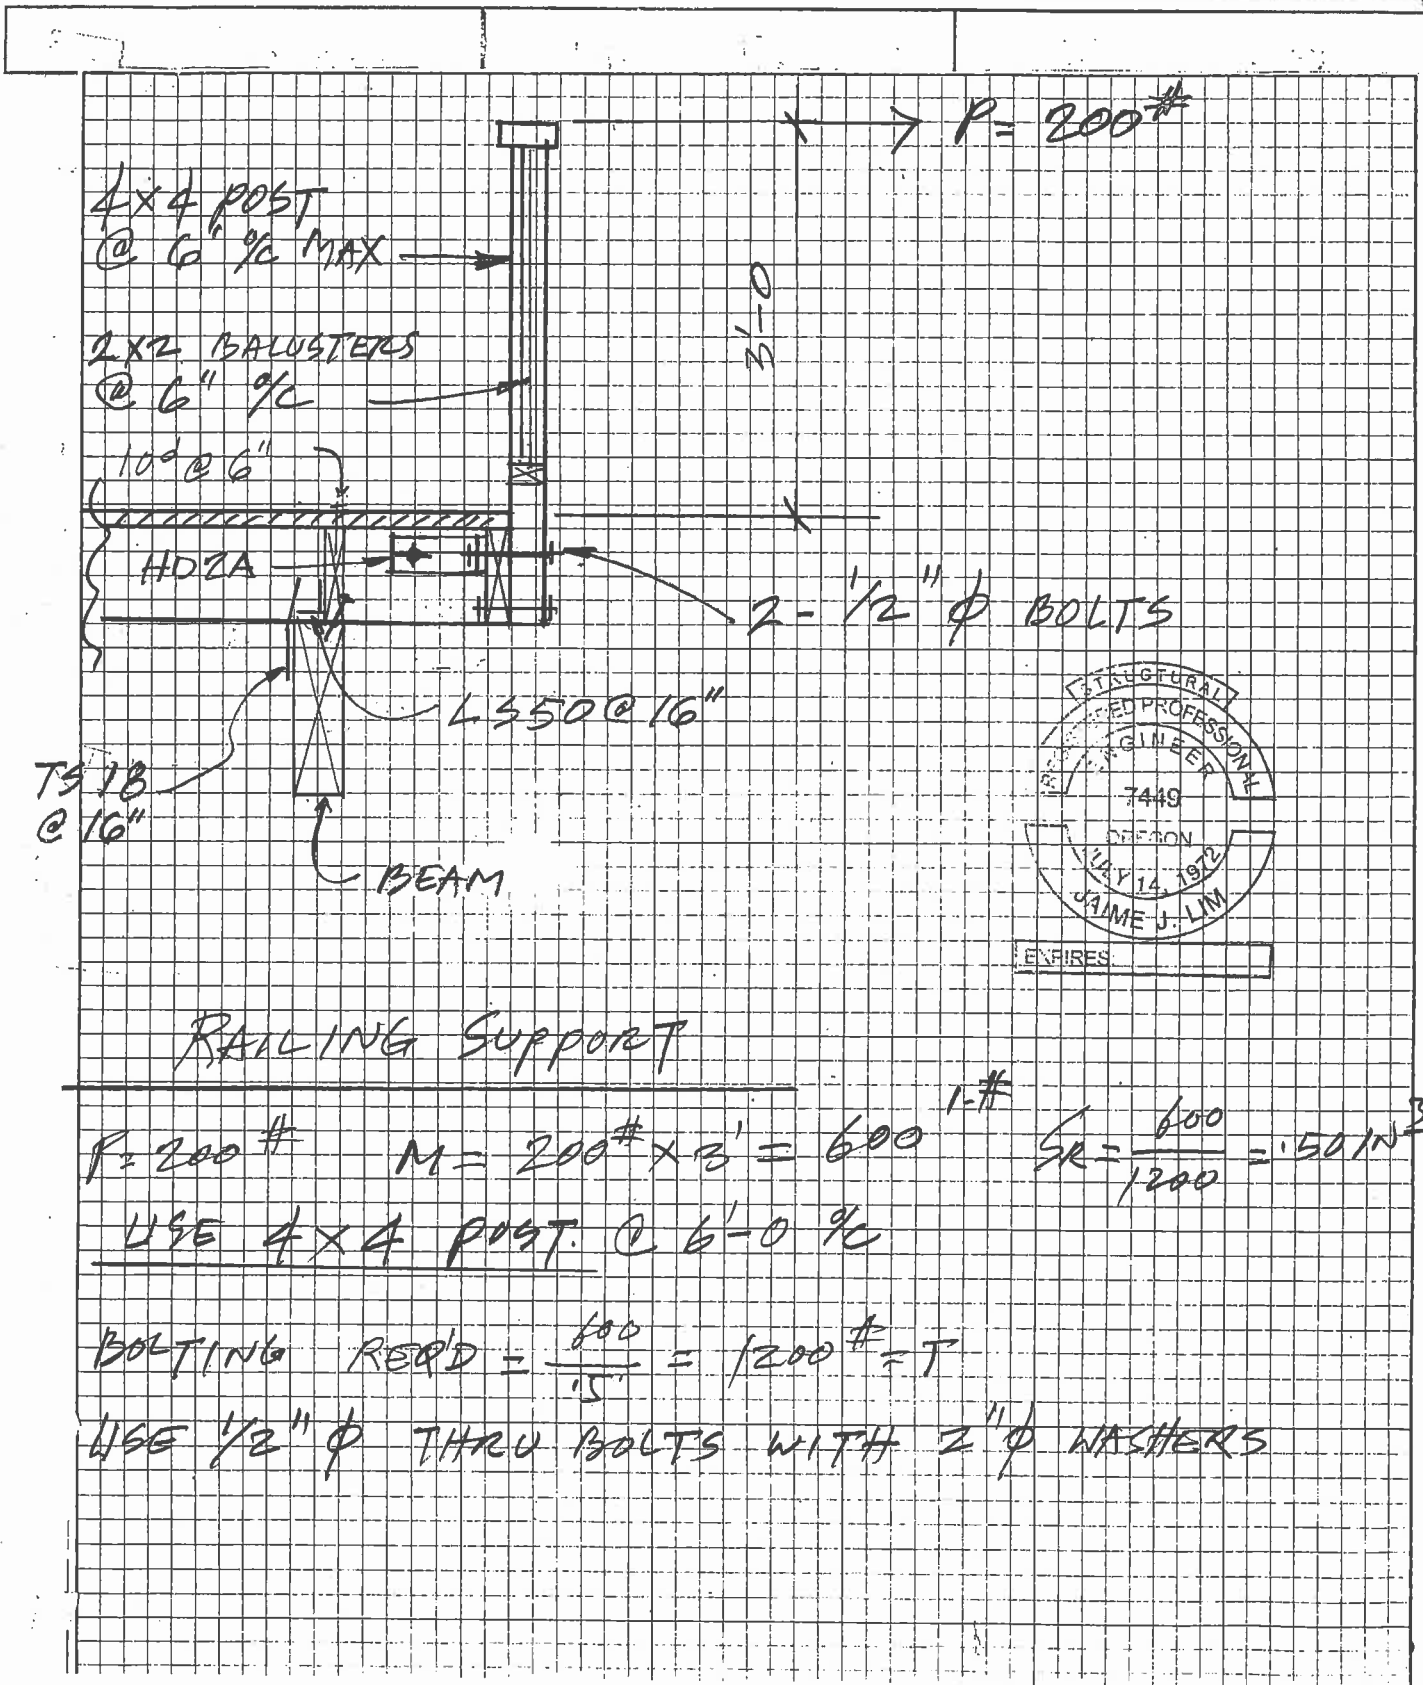 P = 200#
4x4 POST
@ 6' o/c MAX
3'-0
2x2 BALUSTERS
@ 6" o/c
10d @ 6"
HD2A
2 - 1/2" ϕ BOLTS
LS50 @ 16"
TS 18
@ 16"
BEAM
STRUCTURAL
REGISTERED PROFESSIONAL
ENGINEER
7449
OREGON
JULY 14, 1972
JAIME J. LIM
EXPIRES:
RAILING SUPPORT
P = 200# M = 200# x 3' = 600 1-# SR = 600/1200 = .50 IN3
USE 4x4 POST. @ 6'-0 o/c
BOLTING REQ'D = 600/.5' = 1200# = T
USE 1/2" ϕ THRU BOLTS WITH 2" ϕ WASHERS